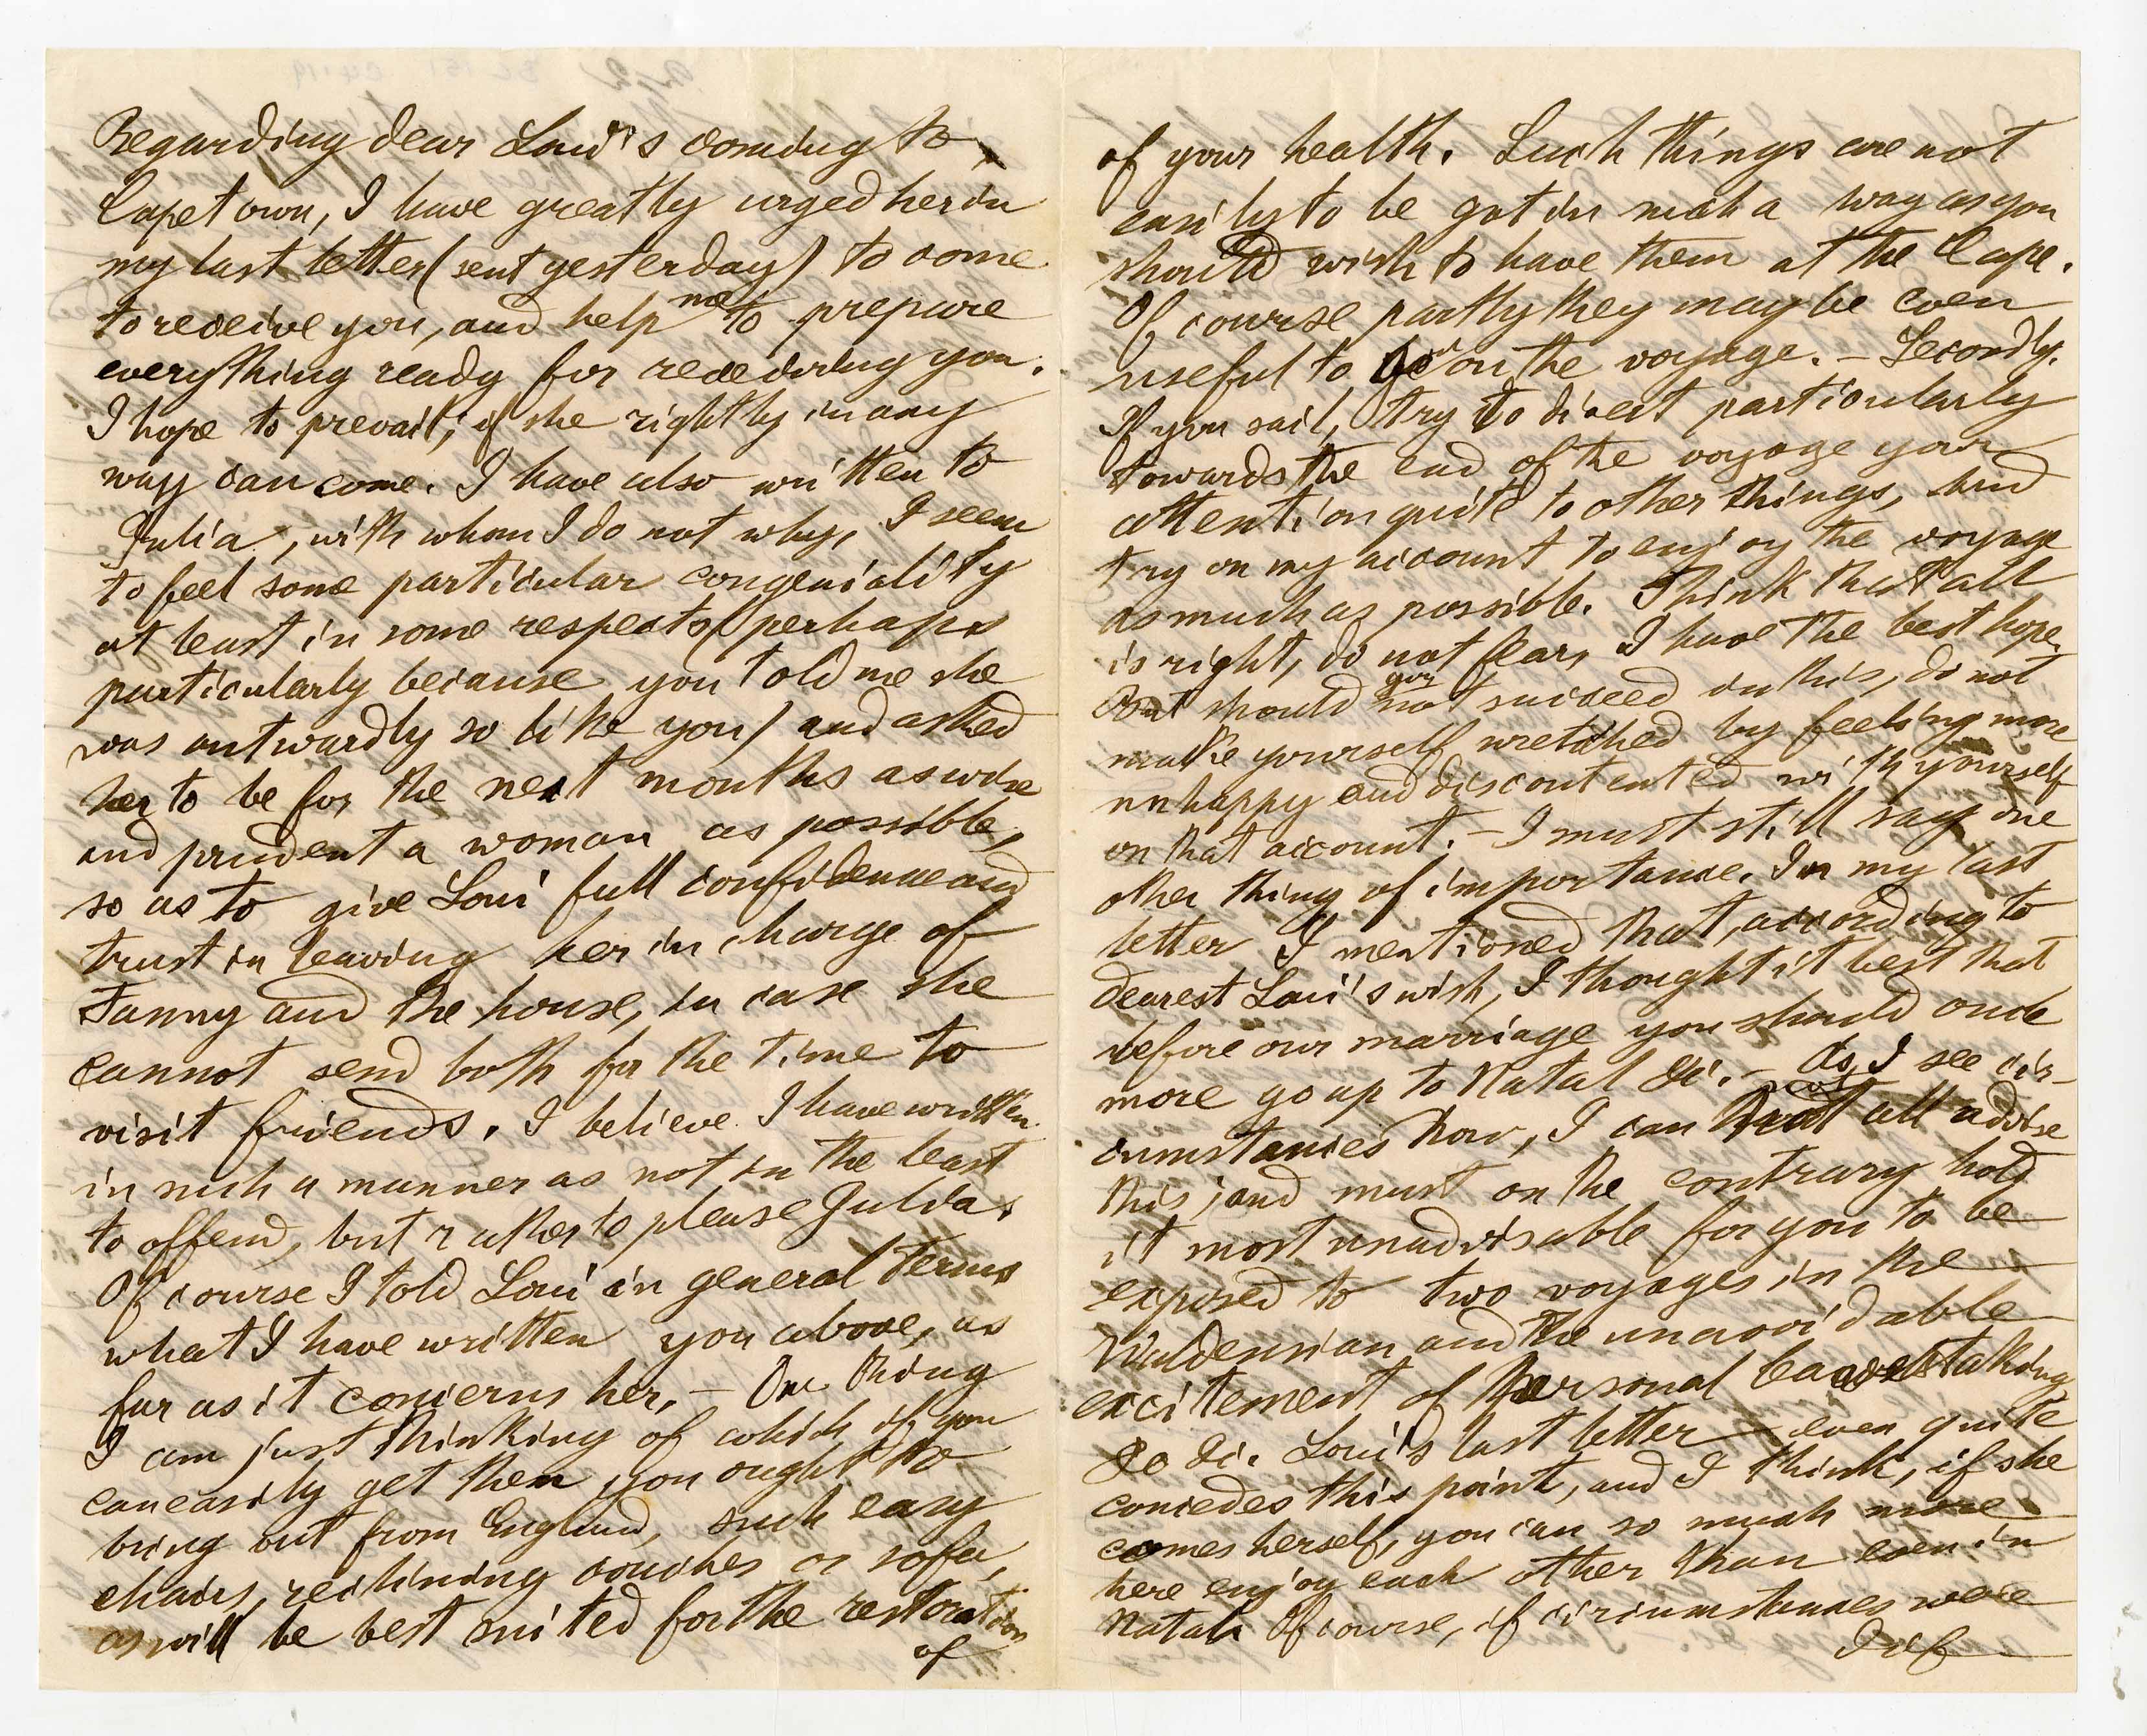 Regarding dear Loui's coming to
Capetown, I have greatly urged her in
my last letter (sent yesterday) to come
to receive you, and help me to prepare
everything ready for receiving you.
I hope to prevail, if she rightly in any
way can come. I have also written to
Julia, with whom I do not why, I seem
to feel some particular congeniality
at least in some respects (perhaps
particularly because you told me she
was outwardly so like you) and asked
her to be for the next months as wise
and prudent a woman as possible,
so as to give Loui full confidence and
trust in leaving her in charge of
Fanny and the house, in case she
cannot send both for the time to
visit friends. I believe I have written
in such a manner as not in the least
to offend, but rather to please Julia.
Of course I told Loui in general terms
what I have written you above, as
far as it concerns her. – One thing
I am just thinking of which if you
can easily get them you ought to
bring out from England, such easy
chairs, reclining couches or sofa,
as will be best suited for the restoration
of
of your health. Such things are not
easily to be got in such a way as you
should wish to have them at the Cape.
Of course partly they may be even
useful to you on the voyage. – Secondly.
If you sail, try to divert particularly
towards the end of the voyage your
attention quite to other things, and
try on my account to enjoy the voyage
as much as possible. Think that all
is right, do not fear, I have the best hope.
But should you not succeed in this, do not
make yourself wretched by feeling more
unhappy and discontented with yourself
on that account. – I must still say one
other thing of importance. In my last
letter I mentioned that, according to
dearest Loui's wish, I thought it best that
before our marriage you should once
more go up to Natal &c. – As I see cir-
cumstances now, I can not at all advise
this; and must on the contrary hold
it most unadvisable for you to be
exposed to two voyages in the
Waldensian and the unavoidable
excitement of personal leavetaking
&c &c. Loui's last letter even quite
concedes this point, and I think, if she
comes herself, you can so much more
here enjoy each other than even in
Natal. Of course, if circumstances were
dif